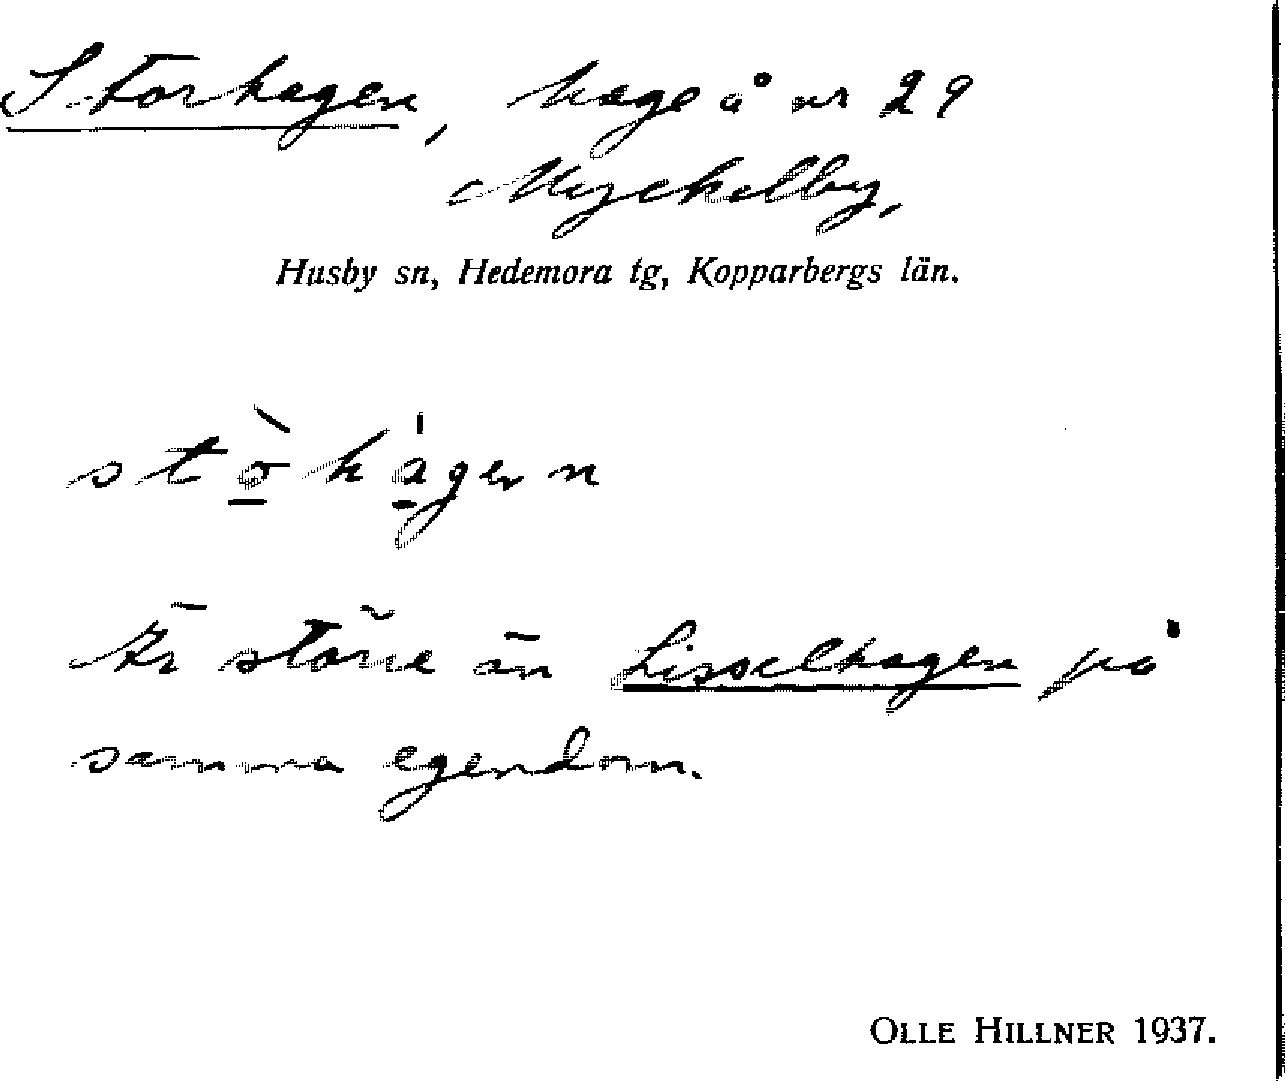 Storhagen, hage å nr 29
Myckelby,
Husby sn, Hedemora tg, Kopparbergs län.
stò̱há̱gen
Är större än Lisselhagen på
samma egendom.
OLLE HILLNER 1937.